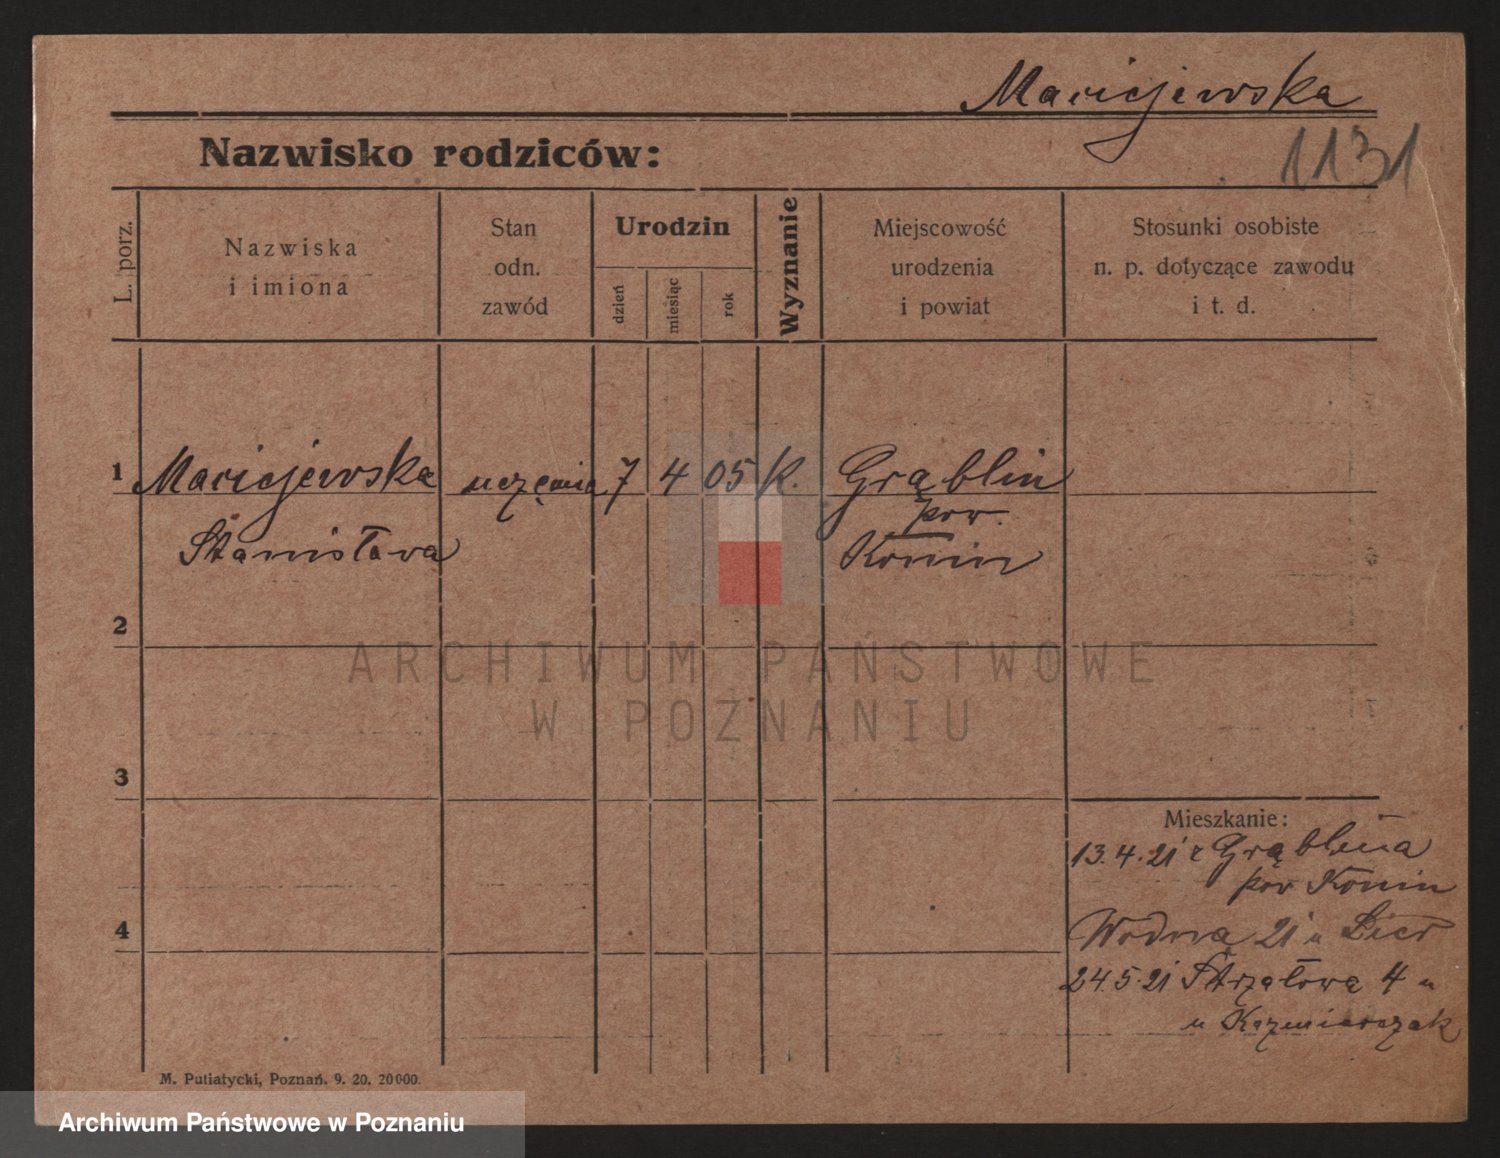 Maciejewska
Nazwisko rodziców:
1131
L. porz.
Nazwiska
i imiona
Stan
odn.
zawód
Urodzin
dzień
miesiąc
rok
Wyznanie
Miejscowość
urodzenia
i powiat
Stosunki osobiste
n. p. dotyczące zawodu
i t. d.
1 Maciejewska uczenica 7 4 05 K. Grąblin
pow.
Stanisława Konin
2
ARCHIWUM PAŃSTWOWE
W POZNANIU
3
Mieszkanie:
13.4.21 z Grąblina
pow Konin
4
Wodna 21 u
24.5.21 Strzałowa 4 u
u Kazmierczak
M. Putiatycki, Poznań. 9. 20. 20000.
Archiwum Państwowe w Poznaniu